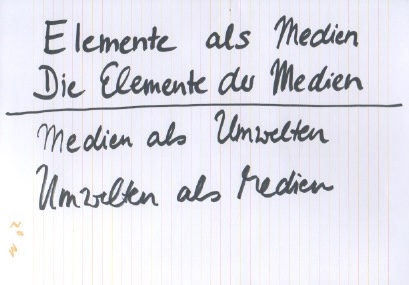 Elemente als Medien
Die Elemente der Medien
Medien als Umwelten
Umwelten als Medien